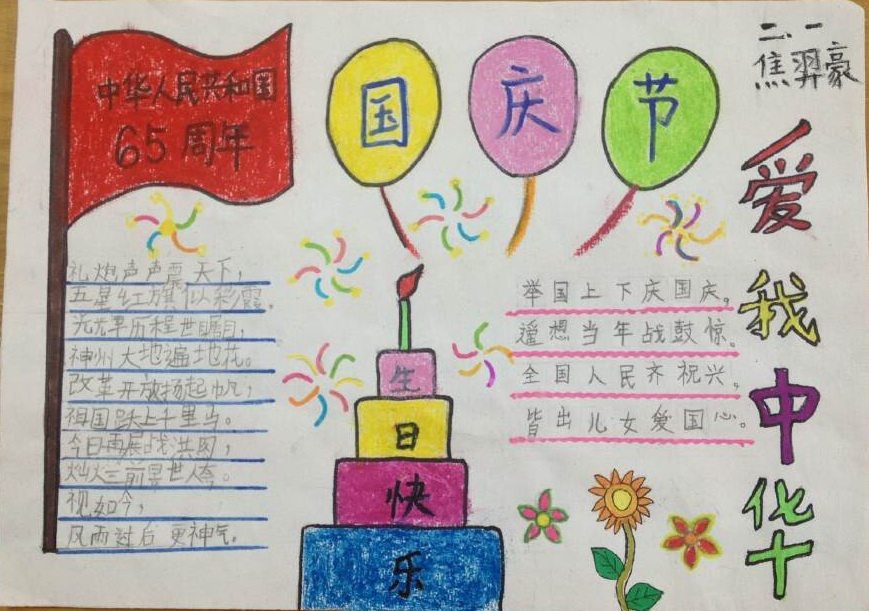 二、一
焦羿豪
中华人民共和国
65周年
国庆节
爱我中华
礼炮声声震天下，
五星红旗似彩霞。
光光荣历程世瞩目，
神州大地遍地花。
改革开放扬起帆，
祖国跃上千里马。
今日再展战洪图，
灿灿前景世人夸。
视如今，
风雨过后更神气。
举国上下庆国庆。
遥想当年战鼓惊。
全国人民齐祝兴。
皆出儿女爱国心。
生
日
快
乐